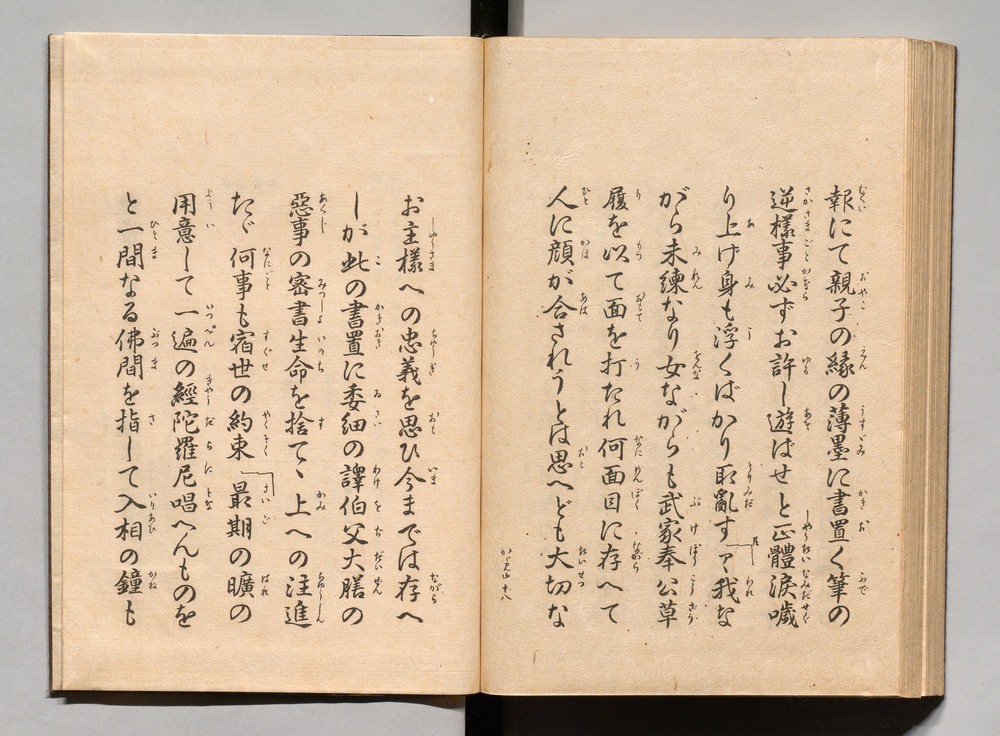 報にて親子の縁の薄墨に書置く筆の
逆樣事必ずお許し遊ばせと正體淚嘰
り上げ身も浮くばかり取亂す「ア我な
がら未練なり女ながらも武家奉公草
履を以て面を打たれ何面目に存へて
人に顏が合されうとは思へども大切な
かゞみ山 十八
お主樣への忠義を思ひ今までは存へ
しが此の書置に委細の譯伯父大膳の
惡事の密書生命を捨てゝ上への注進
たゞ何事も宿世の約束「最期の曠の
用意して一遍の經陀羅尼唱へんものを
と一間なる佛間を指して入相の鐘も